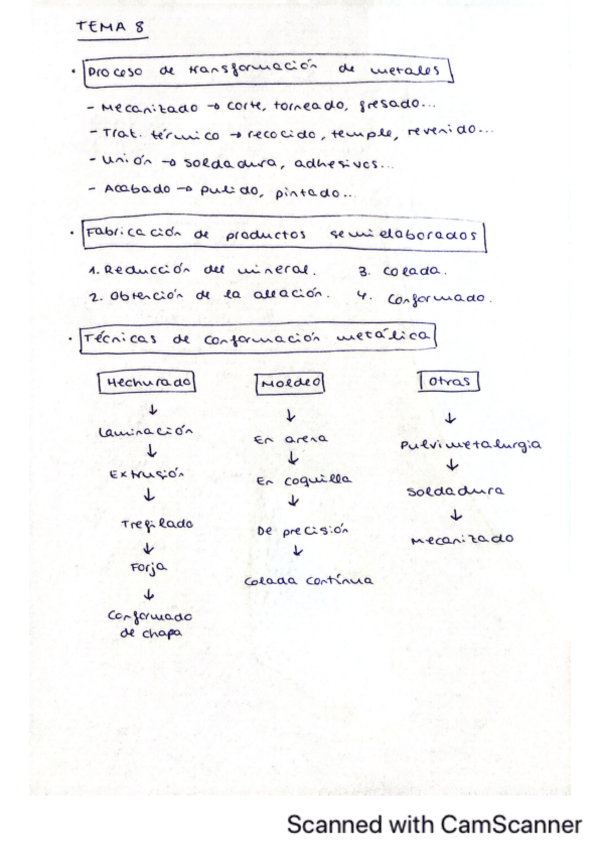 TEMA 8
• Proceso de transformación de metales
- Mecanizado → corte, torneado, fresado...
- Trat. térmico → recocido, temple, revenido...
- Unión → soldadura, adhesivos...
- Acabado → pulido, pintado...
• Fabricación de productos semielaborados
1. Reducción del mineral. 3. Colada.
2. Obtención de la aleación. 4. Conformado.
• Técnicas de conformación metálica
Hechurado Moldeo Otras
↓ ↓ ↓
Laminación En arena Pulvimetalurgia
↓ ↓ ↓
Extrusión En coquilla Soldadura
↓ ↓ ↓
Trefilado De precisión Mecanizado
↓ ↓
Forja Colada contínua
↓
Conformado
de chapa
Scanned with CamScanner